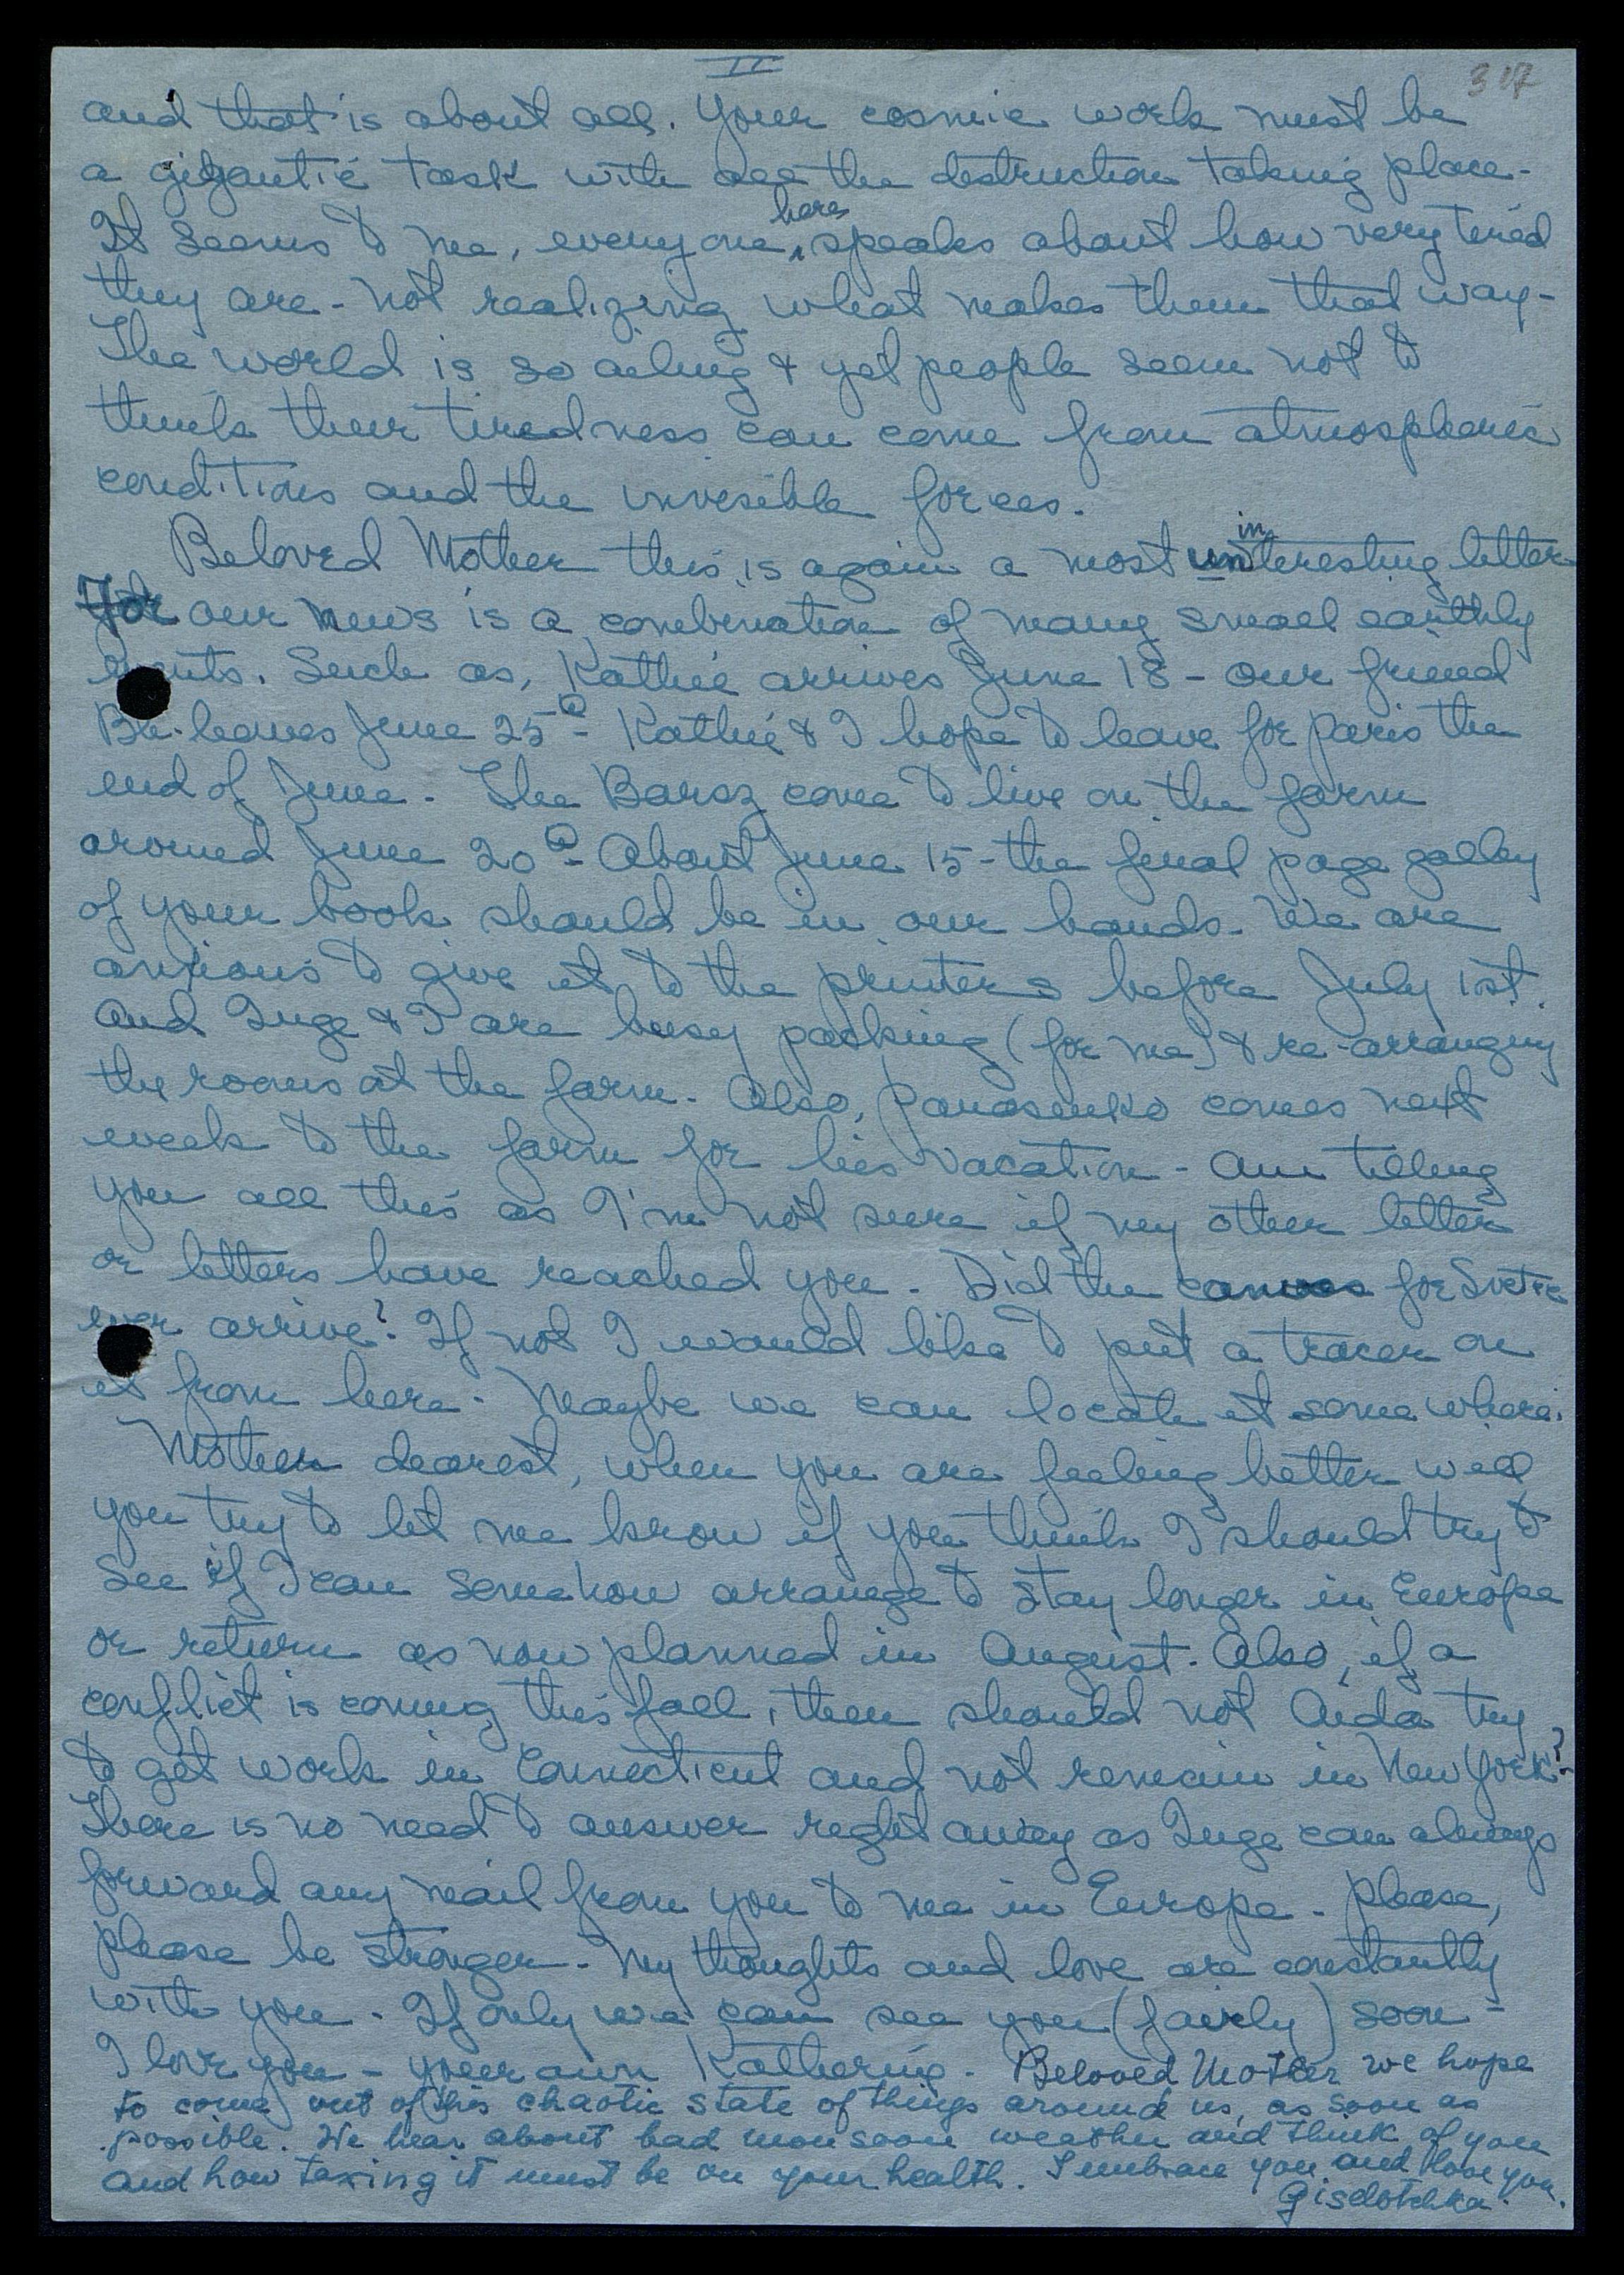 II
317
and that is about all. Your cosmic work must be
a gigantic task with all the destruction taking place -
It seems to me, everyone here speaks about how very tired
they are - not realizing what makes them that way -
The world is so ailing & yet people seem not to
think their tiredness can come from atmospheric
conditions and the invesible forces.
Beloved Mother this is again a most uninteresting letter
For our news is a combination of many small earthly
events. Such as, Kathie arrives June 18 - our friend
leaves June 25 - Kathie & I hope to leave for Paris the
end of June - The Barsz come to live on the farm
around June 20 - About June 15 - the final page galley
of your book should be in our hands. We are
anxious to give it to the printers before July 1st.
And Inge & I are busy packing (for me) & re-arranging
the rooms at the farm - Also, Panasenko comes next
week to the farm for his vacation - Am telling
you all this as I'm not sure if my other letter
or letters have reached you. Did the canvas for Svet
ever arrive? If not I would like to put a tracer on
it from here - Maybe we can locate it some where.
Mother dearest, when you are feeling better will
you try to let me know if you think I should try to
see if I can somehow arrange to stay longer in Europe
or return as now planned in August. Also, if a
conflict is coming this fall, then should not Aida try
to get work in Connecticut and not remain in New York? -
There is no need to answer right away as Inge can always
forward any mail from you to me in Europe - Please,
please be stronger - My thoughts and love are constantly
with you - If only we can see you (fairly) soon -
I love you - your own Katherine. Beloved Mother we hope
to come out of this chaotic state of things around us, as soon as
possible. We hear about bad monsoon weather and think of you
and how taxing it must be on your health. I embrace you and love you.
Giselotchka.